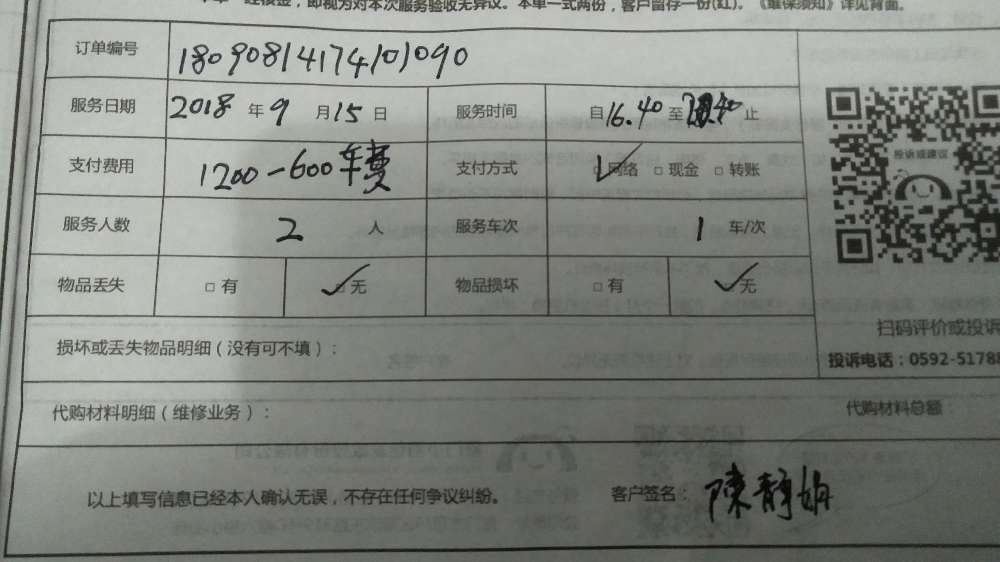 即视为对本次服务验收无异议。本单一式两份，客户留存一份(红)。《维保须知》详见背面。
订单编号 18090814174101090
服务日期 2018 年 9 月 15 日 服务时间 自 16.40 至 止
支付费用 1200-600车费 支付方式 ☑网络 □现金 □转账
投诉或建议
服务人数 2 人 服务车次 1 车/次
物品丢失 □有 ☑无 物品损坏 □有 ☑无
扫码评价或投诉
损坏或丢失物品明细（没有可不填）：
投诉电话：0592-5178
代购材料明细（维修业务）： 代购材料总额
以上填写信息已经本人确认无误，不存在任何争议纠纷。 客户签名： 陳靜娟